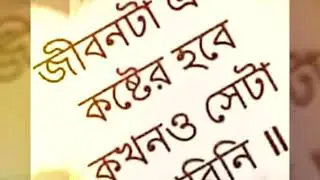 জীবনটা এ
কষ্টের হবে
কখনও সেটা
বিনি ॥